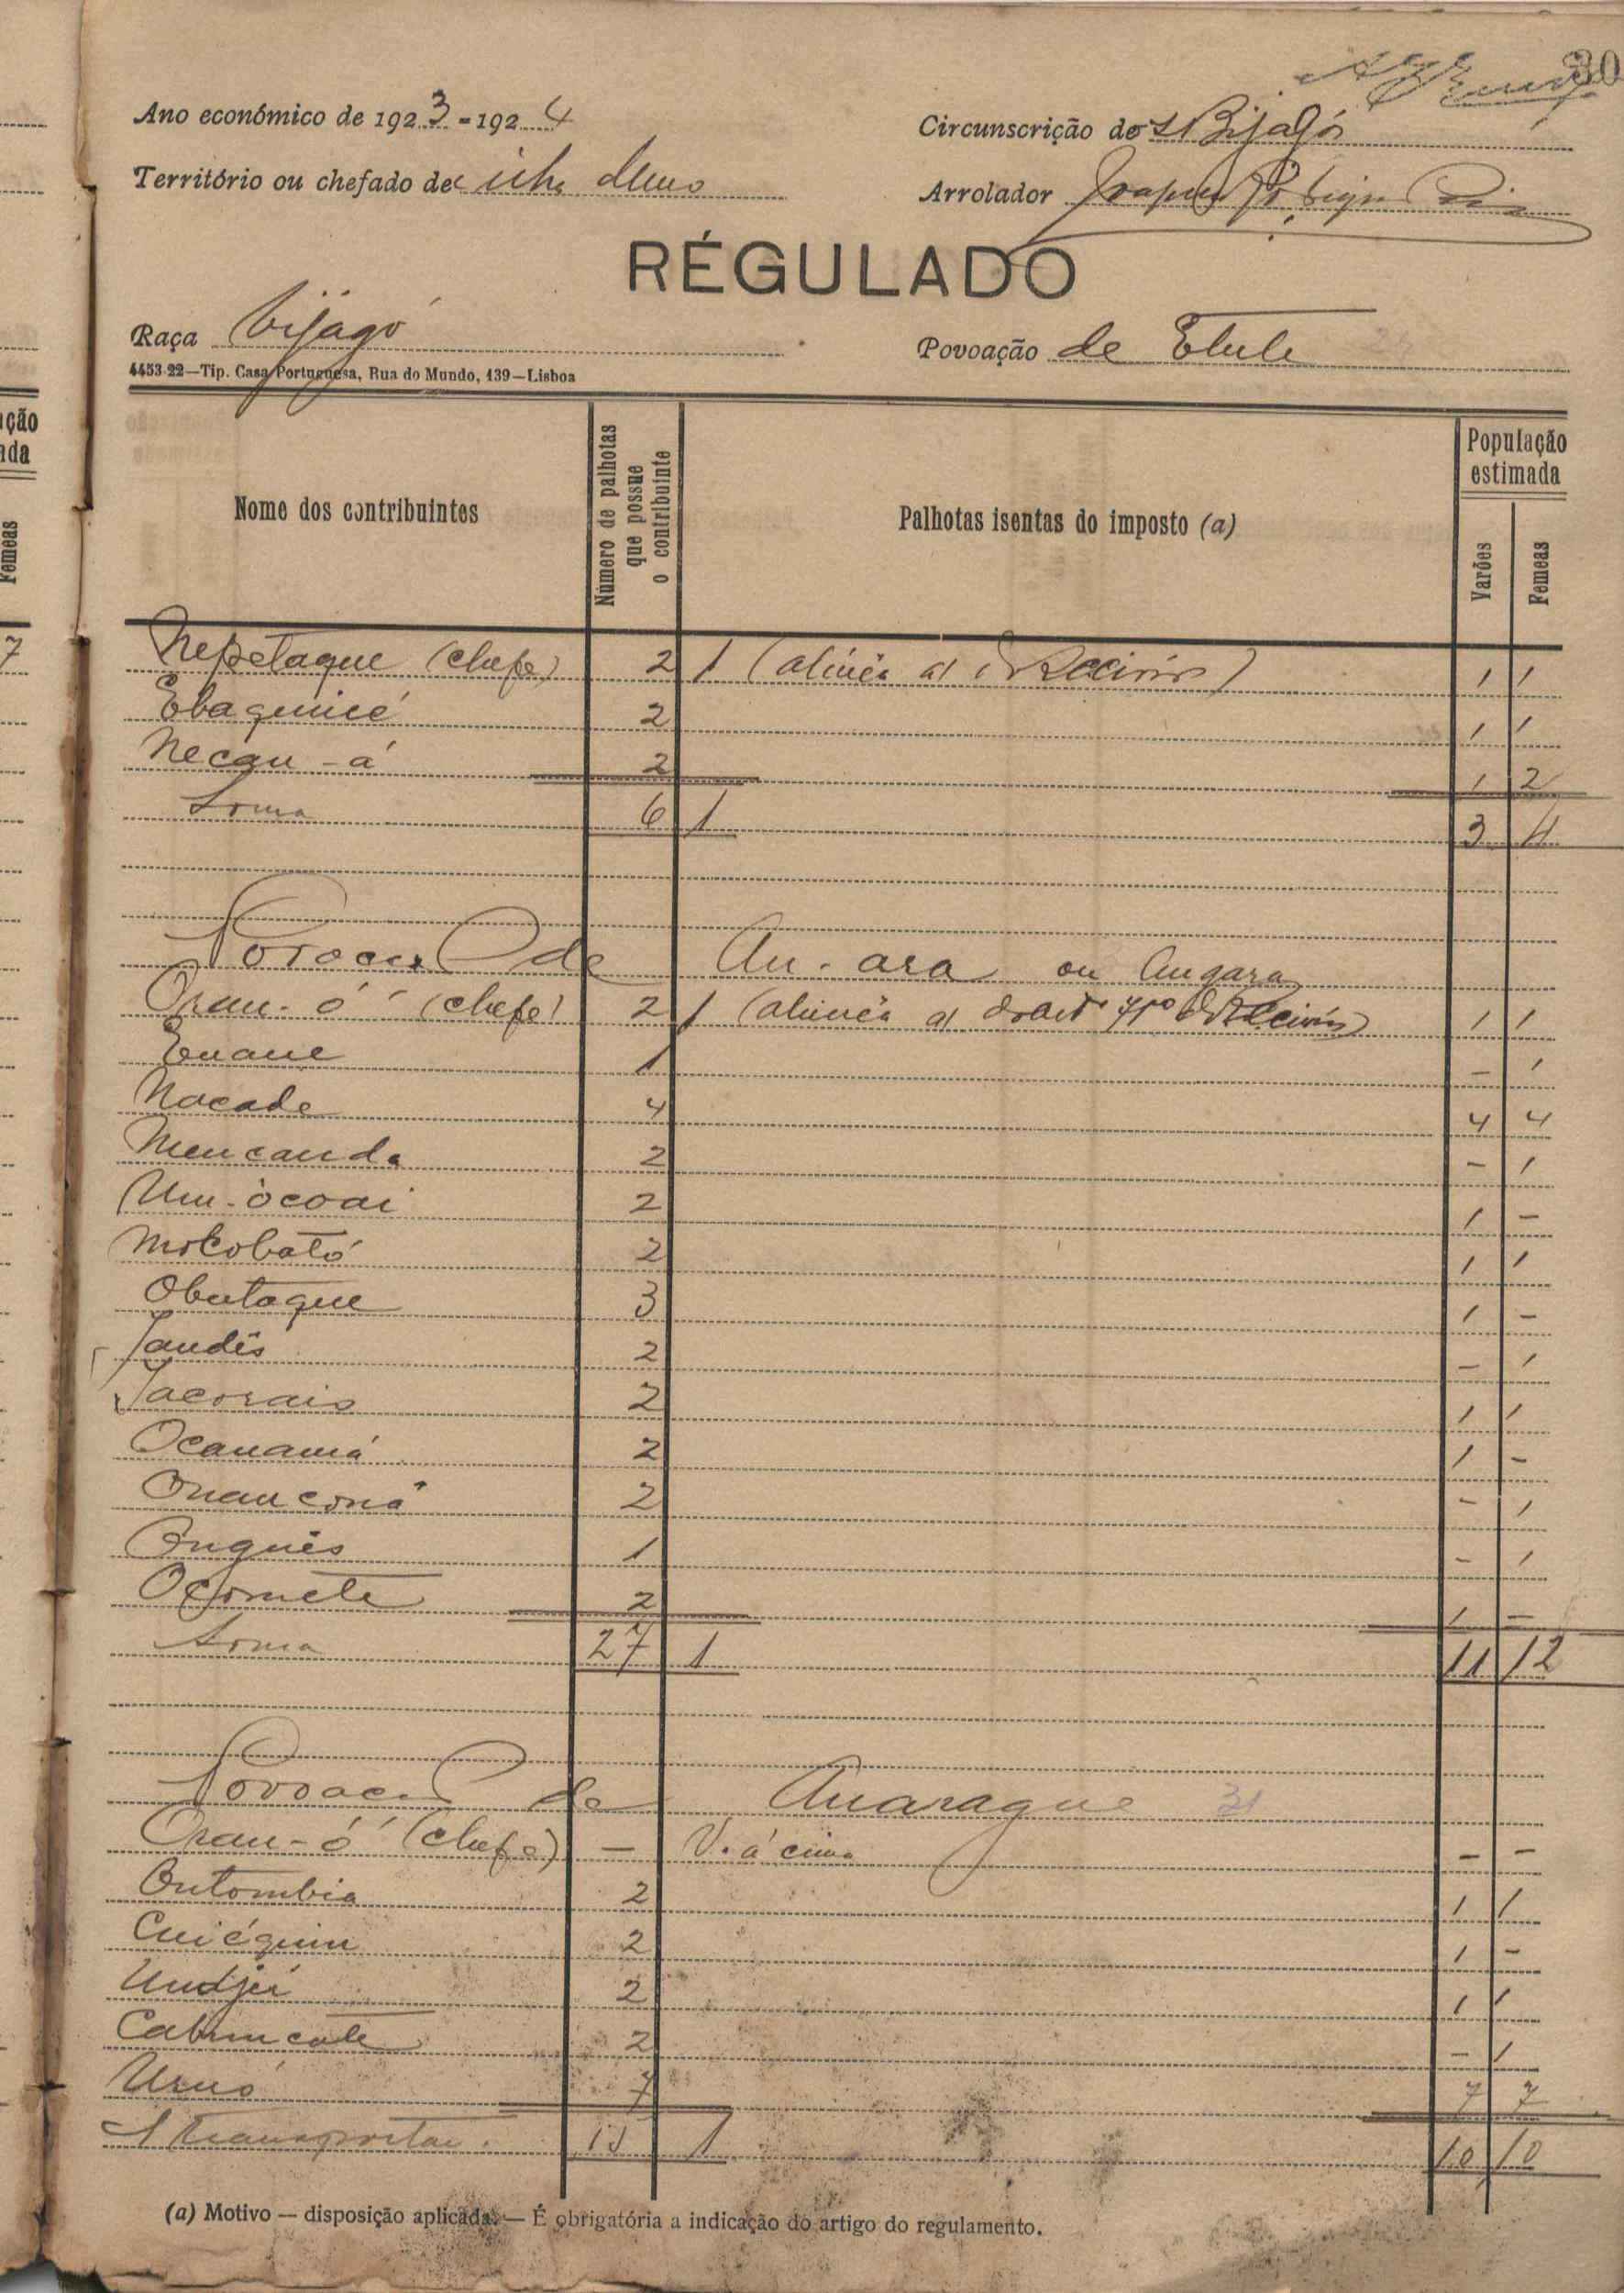 30
Ano económico de 1923-1924
Circunscrição dos Bijagós
Território ou chefado de
Arrolador
RÉGULADO
Raça bijagó
Povoação de Etute
4453-22—Tip. Casa Portuguesa, Rua do Mundo, 139—Lisboa
Nome dos contribuintes
Número de palhotas que possue o contribuinte
Palhotas isentas do imposto (a)
População estimada
Varões
Femeas
Nepetaque (chefe) 2 1 (alinea a) 1 1
Ebaquinié 2 1 1
Necau-á 2 1 2
Soma 6 1 3 4
Povoação de An-ara ou Angara
Oran-ó (chefe) 2 1 (alinea a) do art. 1 1
Enane 1 - 1
Nacade 4 4 4
Mencanda 2 - 1
Um-ócoai 2 1 -
Motobató 2 1 1
Obutaque 3 1 -
Jandês 2 - 1
Jacorais 2 1 1
Ocanamá 2 1 -
Onanconâ 2 - 1
Onguês 1 - 1
Ocomete 2 1 -
Soma 27 1 11 12
Povoação de Anarague 31
Oran-ó (chefe) - V. ácima - -
Ontombia 2 1 1
Cuiéquin 2 1 -
Undjei 2 1 1
Cabumcate 2 - 1
Urús 7 7 7
A transportar. 1 10 10
(a) Motivo — disposição aplicada. — É obrigatória a indicação do artigo do regulamento.
ção
ada
Femeas
7